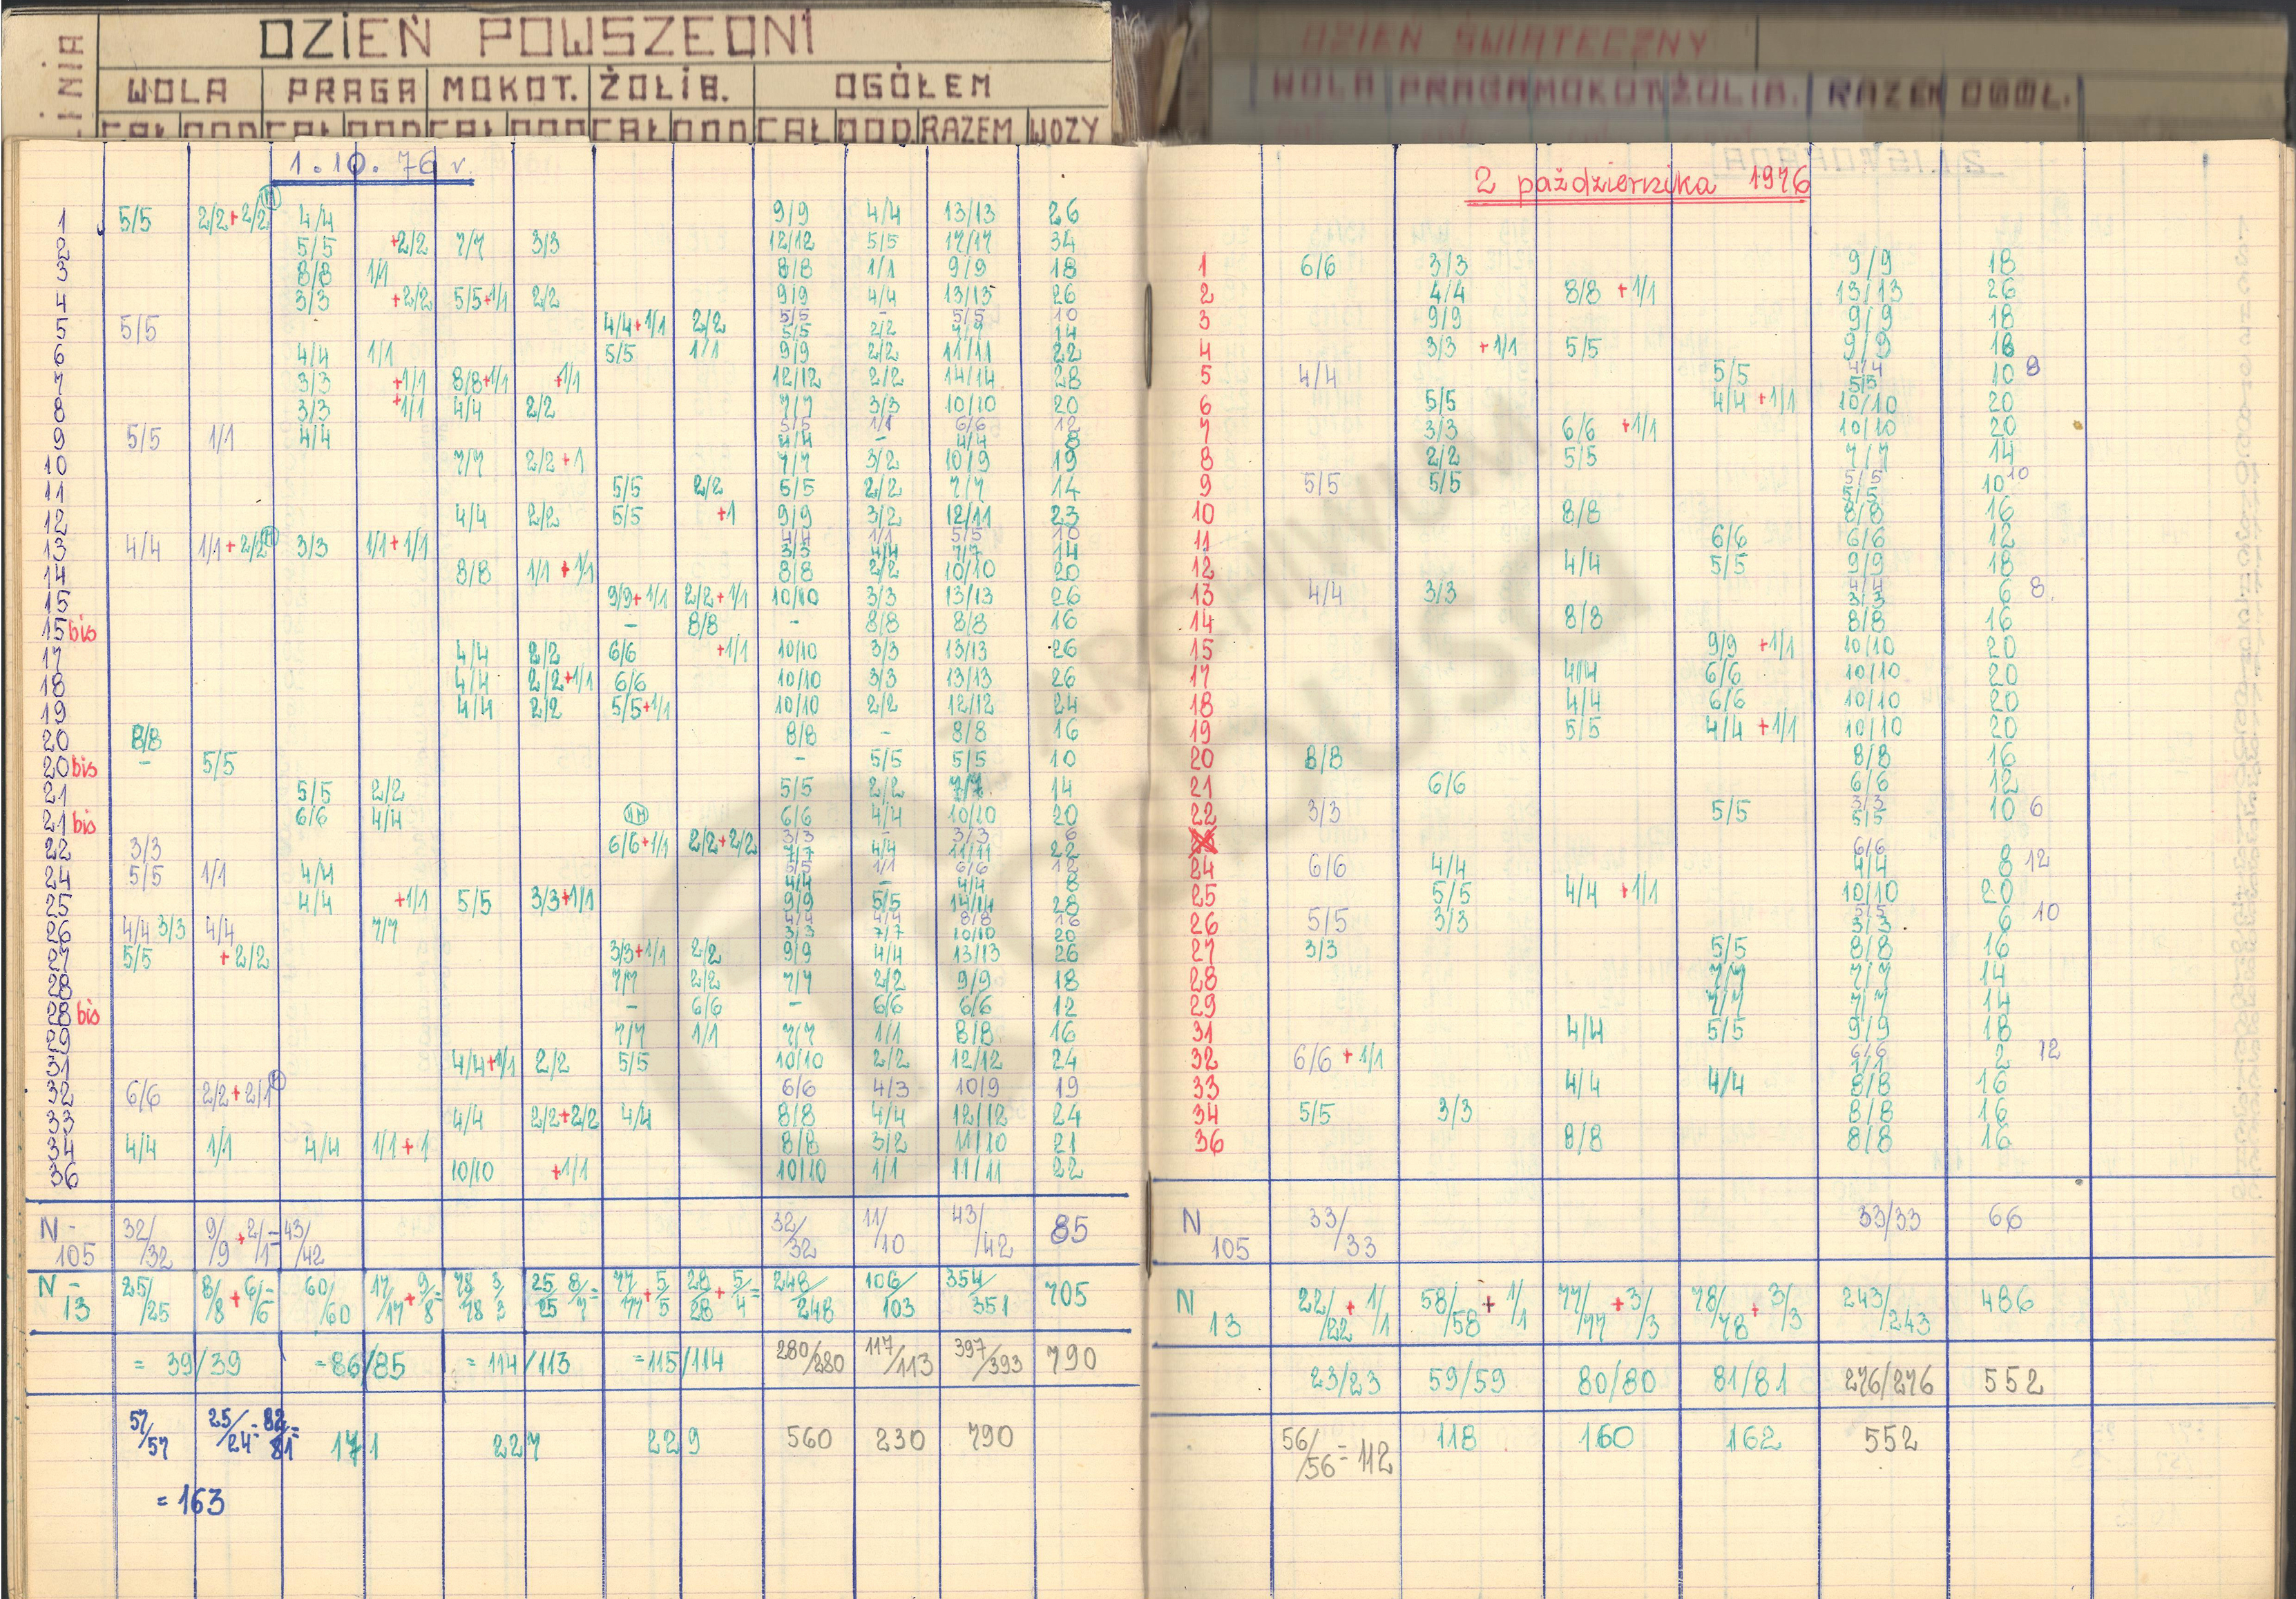 LINIA
DZIEŃ POWSZEDNI
WOLA PRAGA MOKOT. ŻOLIB. OGÓŁEM
CAŁ DOD CAŁ DOD CAŁ DOD CAŁ DOD CAŁ DOD. RAZEM WOZY
1.10.76 r.
1 5/5 2/2+2/2 4/4 9/9 4/4 13/13 26
2 5/5 +2/2 7/7 3/3 12/12 5/5 17/17 34
3 8/8 1/1 8/8 1/1 9/9 18
4 3/3 +2/2 5/5+1/1 2/2 9/9 4/4 13/13 26
5/5 - 5/5 10
5 5/5 4/4+1/1 2/2 5/5 2/2 7/7 14
6 4/4 1/1 5/5 1/1 9/9 2/2 11/11 22
7 3/3 +1/1 8/8+1/1 +1/1 12/12 2/2 14/14 28
8 3/3 +1/1 4/4 2/2 7/7 3/3 10/10 20
5/5 1/1 6/6 12
9 5/5 1/1 4/4 4/4 - 4/4 8
10 7/7 2/2+1 7/7 3/2 10/9 19
11 5/5 2/2 5/5 2/2 7/7 14
12 4/4 2/2 5/5 +1 9/9 3/2 12/11 23
4/4 1/1 5/5 10
13 4/4 1/1+2/2 3/3 1/1+1/1 3/3 4/4 7/7 14
14 8/8 1/1+1/1 8/8 2/2 10/10 20
15 9/9+1/1 2/2+1/1 10/10 3/3 13/13 26
15 bis - 8/8 - 8/8 8/8 16
17 4/4 2/2 6/6 +1/1 10/10 3/3 13/13 26
18 4/4 2/2+1/1 6/6 10/10 3/3 13/13 26
19 4/4 2/2 5/5+1/1 10/10 2/2 12/12 24
20 8/8 8/8 - 8/8 16
20 bis - 5/5 - 5/5 5/5 10
21 5/5 2/2 5/5 2/2 7/7 14
21 bis 6/6 4/4 6/6 4/4 10/10 20
3/3 - 3/3 6
22 3/3 6/6+1/1 2/2+2/2 7/7 4/4 11/11 22
5/5 1/1 6/6 12
24 5/5 1/1 4/4 4/4 - 4/4 8
25 4/4 +1/1 5/5 3/3+1/1 9/9 5/5 14/14 28
4/4 4/4 8/8 16
26 4/4 3/3 4/4 7/7 3/3 7/7 10/10 20
27 5/5 +2/2 3/3+1/1 2/2 9/9 4/4 13/13 26
28 7/7 2/2 7/7 2/2 9/9 18
28 bis - 6/6 - 6/6 6/6 12
29 7/7 1/1 7/7 1/1 8/8 16
31 4/4+1/1 2/2 5/5 10/10 2/2 12/12 24
32 6/6 2/2+2/1 6/6 4/3 10/9 19
33 4/4 2/2+2/2 4/4 8/8 4/4 12/12 24
34 4/4 1/1 4/4 1/1+1 8/8 3/2 11/10 21
36 10/10 +1/1 10/10 1/1 11/11 22
N-105 32/32 9/9+2/1= 43/42 32/32 11/10 43/42 85
N-13 25/25 8/8+6/6= 60/60 17/17+9/8= 78/78 3/3 25/25 8/7= 77/77+5/5 28/28+5/4= 248/248 106/103 354/351 705
= 39/39 =86/85 = 114/113 =115/114 280/280 117/113 397/393 790
57/57 25/24= 82/81= 171 227 229 560 230 790
= 163
DZIEŃ ŚWIĄTECZNY
WOLA PRAGA MOKOT ŻOLIB. RAZEM OGÓŁ.
2 października 1976
1 6/6 3/3 9/9 18
2 4/4 8/8 +1/1 13/13 26
3 9/9 9/9 18
4 3/3 +1/1 5/5 9/9 18
4/4
5 4/4 5/5 5/5 10 8
6 5/5 4/4 +1/1 10/10 20
7 3/3 6/6 +1/1 10/10 20
8 2/2 5/5 7/7 14
5/5
9 5/5 5/5 5/5 10 10
10 8/8 8/8 16
11 6/6 6/6 12
12 4/4 5/5 9/9 18
4/4
13 4/4 3/3 3/3 6 8.
14 8/8 8/8 16
15 9/9 +1/1 10/10 20
17 4/4 6/6 10/10 20
18 4/4 6/6 10/10 20
19 5/5 4/4 +1/1 10/10 20
20 8/8 8/8 16
21 6/6 6/6 12
3/3
22 3/3 5/5 5/5 10 6
6/6
24 6/6 4/4 4/4 8 12
25 5/5 4/4 +1/1 10/10 20
5/5
26 5/5 3/3 3/3 6 10
27 3/3 5/5 8/8 16
28 7/7 7/7 14
29 7/7 7/7 14
31 4/4 5/5 9/9 18
6/6
32 6/6 +1/1 1/1 2 12
33 4/4 4/4 8/8 16
34 5/5 3/3 8/8 16
36 8/8 8/8 16
N 105 33/33 33/33 66
N 13 22/22 + 1/1 58/58 + 1/1 77/77 +3/3 78/78 + 3/3 243/243 486
23/23 59/59 80/80 81/81 276/276 552
56/56 = 112 118 160 162 552